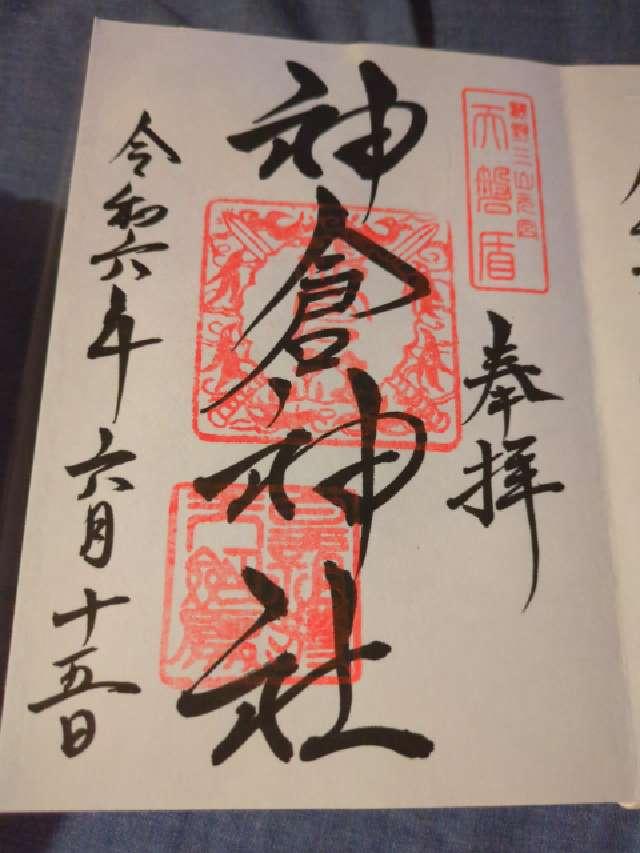 熊野三山元宮
天磐盾
奉拝
神倉神社
令和六年六月十五日